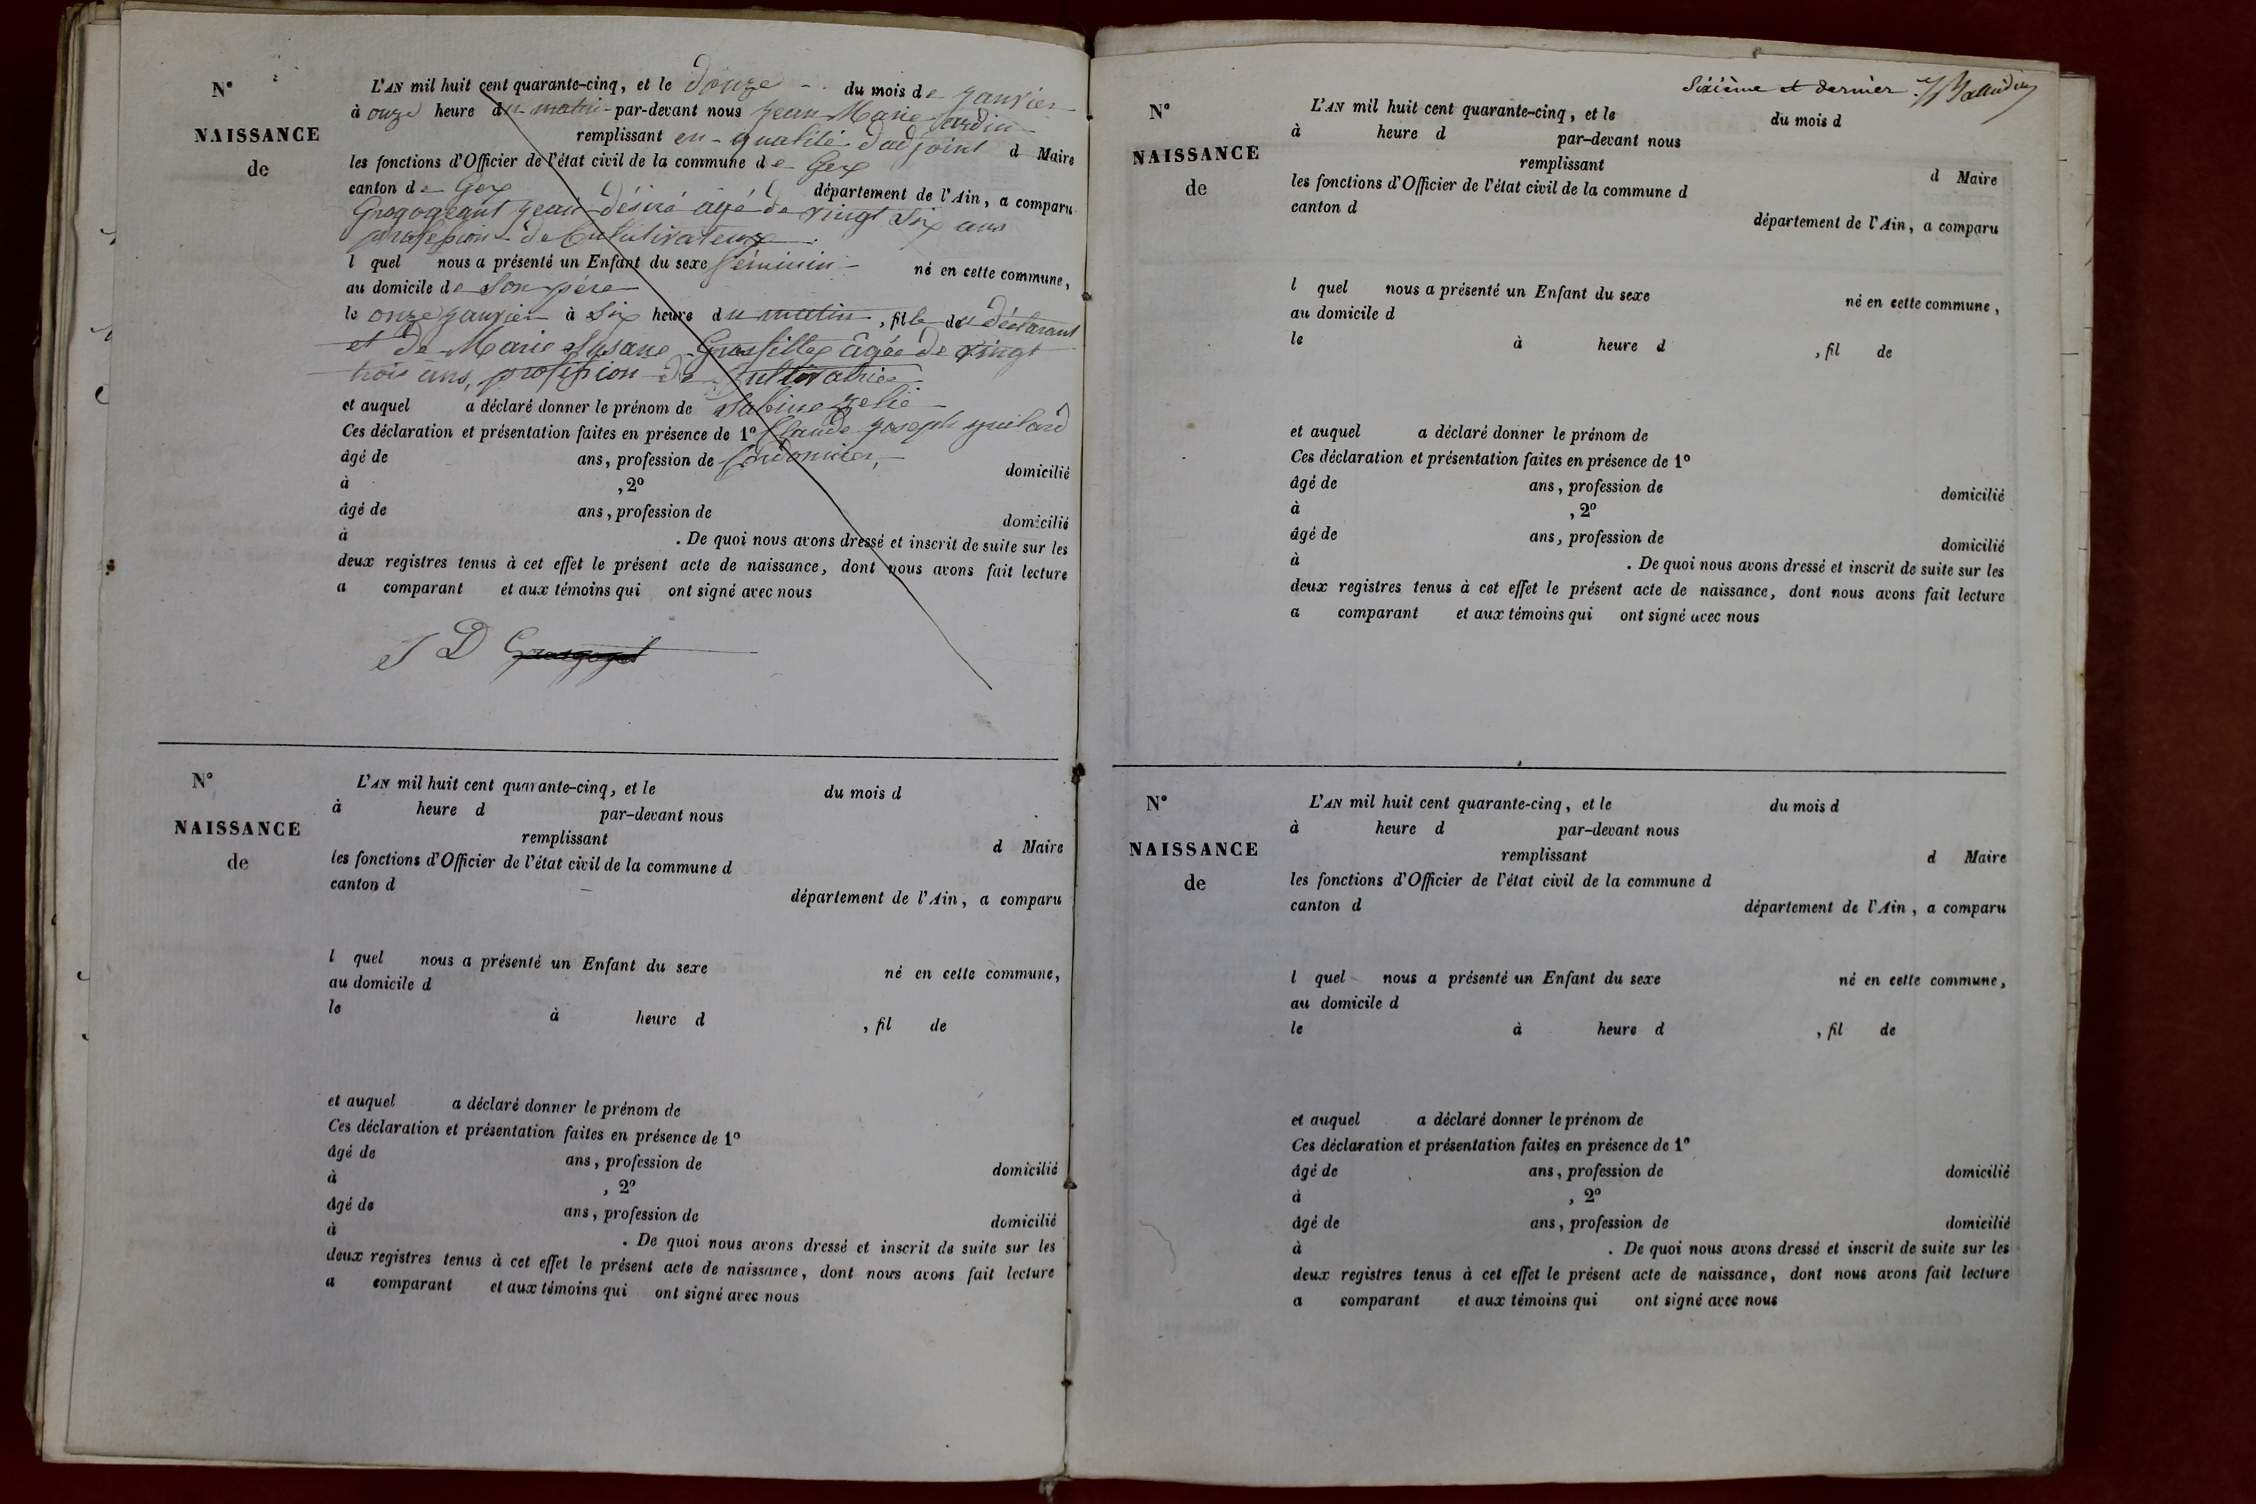 N°
NAISSANCE
de
L'AN mil huit cent quarante-cinq, et le douze du mois de janvier
à onze heure du matin par-devant nous Jean Marie Jardin
remplissant en qualité d'adjoint d Maire
les fonctions d'Officier de l'état civil de la commune de Gex
canton de Gex département de l'Ain, a comparu
Grosgogeat Jean Désiré âgé de vingt six ans
profession de Cultivateur
l quel nous a présenté un Enfant du sexe féminin né en cette commune,
au domicile de son père
le onze janvier à six heure du matin, fille du déclarant
et de Marie Susane âgée de vingt
trois ans, profession de Cultivatrice
et auquel a déclaré donner le prénom de Sabine
Ces déclaration et présentation faites en présence de 1° Claude Joseph
âgé de ans, profession de Cordonnier, domicilié
à , 2°
âgé de ans, profession de domicilié
à . De quoi nous avons dressé et inscrit de suite sur les
deux registres tenus à cet effet le présent acte de naissance, dont nous avons fait lecture
a comparant et aux témoins qui ont signé avec nous
J D
N°
NAISSANCE
de
L'AN mil huit cent quarante-cinq, et le du mois d
à heure d par-devant nous
remplissant d Maire
les fonctions d'Officier de l'état civil de la commune d
canton d département de l'Ain, a comparu
l quel nous a présenté un Enfant du sexe né en cette commune,
au domicile d
le à heure d , fil de
et auquel a déclaré donner le prénom de
Ces déclaration et présentation faites en présence de 1°
âgé de ans, profession de domicilié
à , 2°
âgé de ans, profession de domicilié
à . De quoi nous avons dressé et inscrit de suite sur les
deux registres tenus à cet effet le présent acte de naissance, dont nous avons fait lecture
a comparant et aux témoins qui ont signé avec nous
Sixième et dernier
N°
NAISSANCE
de
L'AN mil huit cent quarante-cinq, et le du mois d
à heure d par-devant nous
remplissant d Maire
les fonctions d'Officier de l'état civil de la commune d
canton d département de l'Ain, a comparu
l quel nous a présenté un Enfant du sexe né en cette commune,
au domicile d
le à heure d , fil de
et auquel a déclaré donner le prénom de
Ces déclaration et présentation faites en présence de 1°
âgé de ans, profession de domicilié
à , 2°
âgé de ans, profession de domicilié
à . De quoi nous avons dressé et inscrit de suite sur les
deux registres tenus à cet effet le présent acte de naissance, dont nous avons fait lecture
a comparant et aux témoins qui ont signé avec nous
N°
NAISSANCE
de
L'AN mil huit cent quarante-cinq, et le du mois d
à heure d par-devant nous
remplissant d Maire
les fonctions d'Officier de l'état civil de la commune d
canton d département de l'Ain, a comparu
l quel nous a présenté un Enfant du sexe né en cette commune,
au domicile d
le à heure d , fil de
et auquel a déclaré donner le prénom de
Ces déclaration et présentation faites en présence de 1°
âgé de ans, profession de domicilié
à , 2°
âgé de ans, profession de domicilié
à . De quoi nous avons dressé et inscrit de suite sur les
deux registres tenus à cet effet le présent acte de naissance, dont nous avons fait lecture
a comparant et aux témoins qui ont signé avec nous